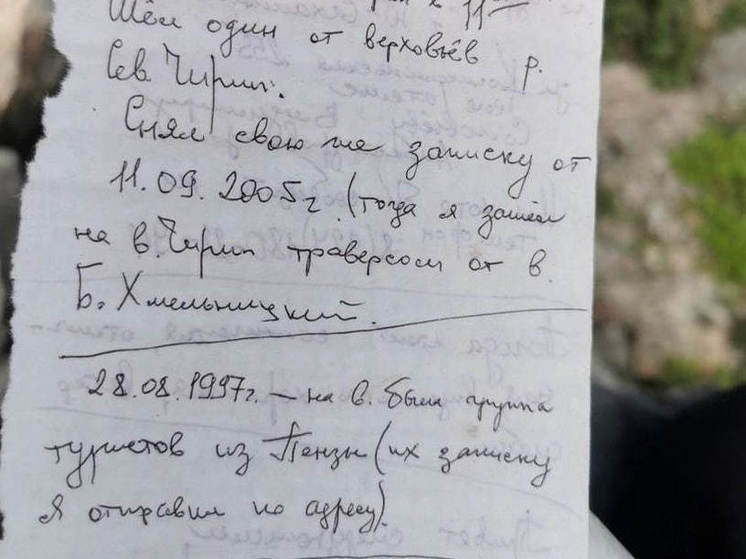 в 11
Шёл один от верховьев р.
Сев. Чирип.
Снял свою же записку от
11.09.2005г. (тогда я зашёл
на в. Чирип траверсом от в.
Б. Хмельницкий.
28.08.1997г. – на в. была группа
туристов из Пензы (их записку
я отправил по адресу).